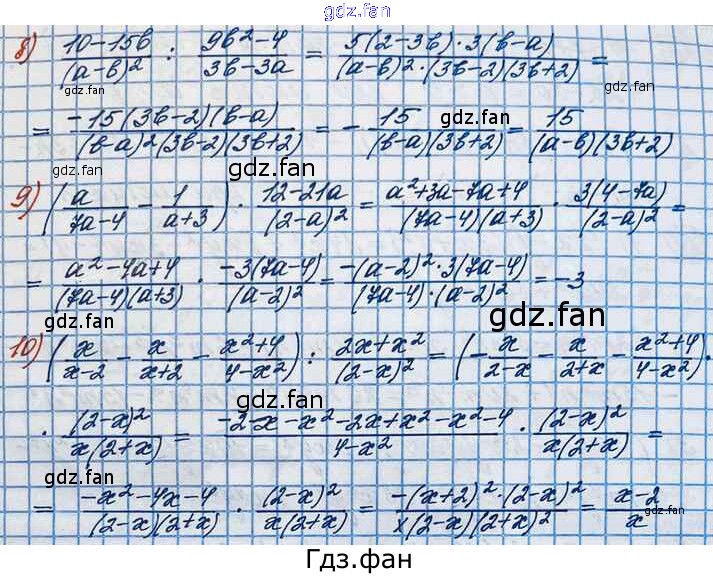 gdz.fan
gdz.fan
8) (10-15b)/(a-b)² : (9b²-4)/(3b-3a) = (5(2-3b)·3(b-a))/((a-b)²·(3b-2)(3b+2)) =
gdz.fan
gdz.fan
= (-15(3b-2)(b-a))/((b-a)²(3b-2)(3b+2)) = - 15/((b-a)(3b+2)) = 15/((a-b)(3b+2))
gdz.fan
gdz.fan
gdz.fan
9) (a/(7a-4) - 1/(a+3)) · (12-21a)/(2-a)² = (a²+3a-7a+4)/((7a-4)(a+3)) · (3(4-7a))/(2-a)² =
= (a²-4a+4)/((7a-4)(a+3)) · (-3(7a-4))/(a-2)² = (-(a-2)²·3(7a-4))/((7a-4)·(a-2)²) = -3
gdz.fan
gdz.fan
10) (x/(x-2) - x/(x+2) - (x²+4)/(4-x²)) : (2x+x²)/(2-x)² = (- x/(2-x) - x/(2+x) - (x²+4)/(4-x²)) ·
gdz.fan
· (2-x)²/(x(2+x)) = (-2x-x²-2x+x²-x²-4)/(4-x²) · (2-x)²/(x(2+x)) =
gdz.fan
gdz.fan
= (-x²-4x-4)/((2-x)(2+x)) · (2-x)²/(x(2+x)) = (-(x+2)²·(2-x)²)/(x(2-x)(2+x)²) = (x-2)/x
gdz.fan
gdz.fan
Гдз.фан